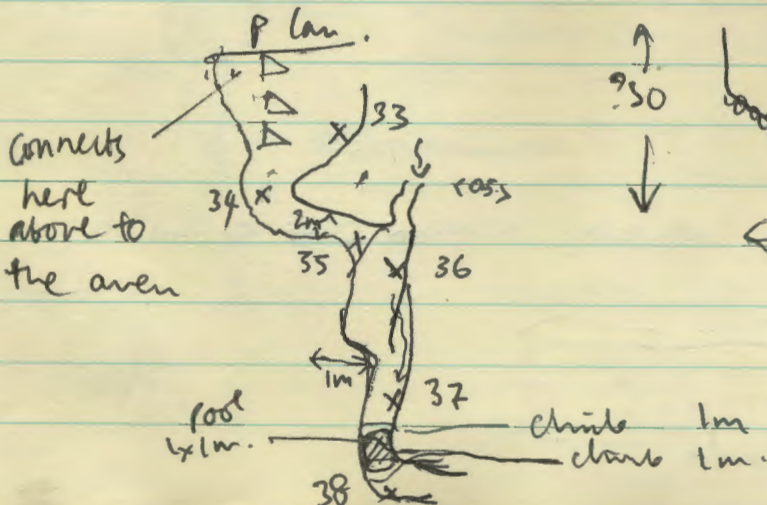 Plan.
?30
33
connects
here
above to
the aven
34
2m
35
36
1m
37
pool
1x1m.
climb 1m
climb 1m.
38